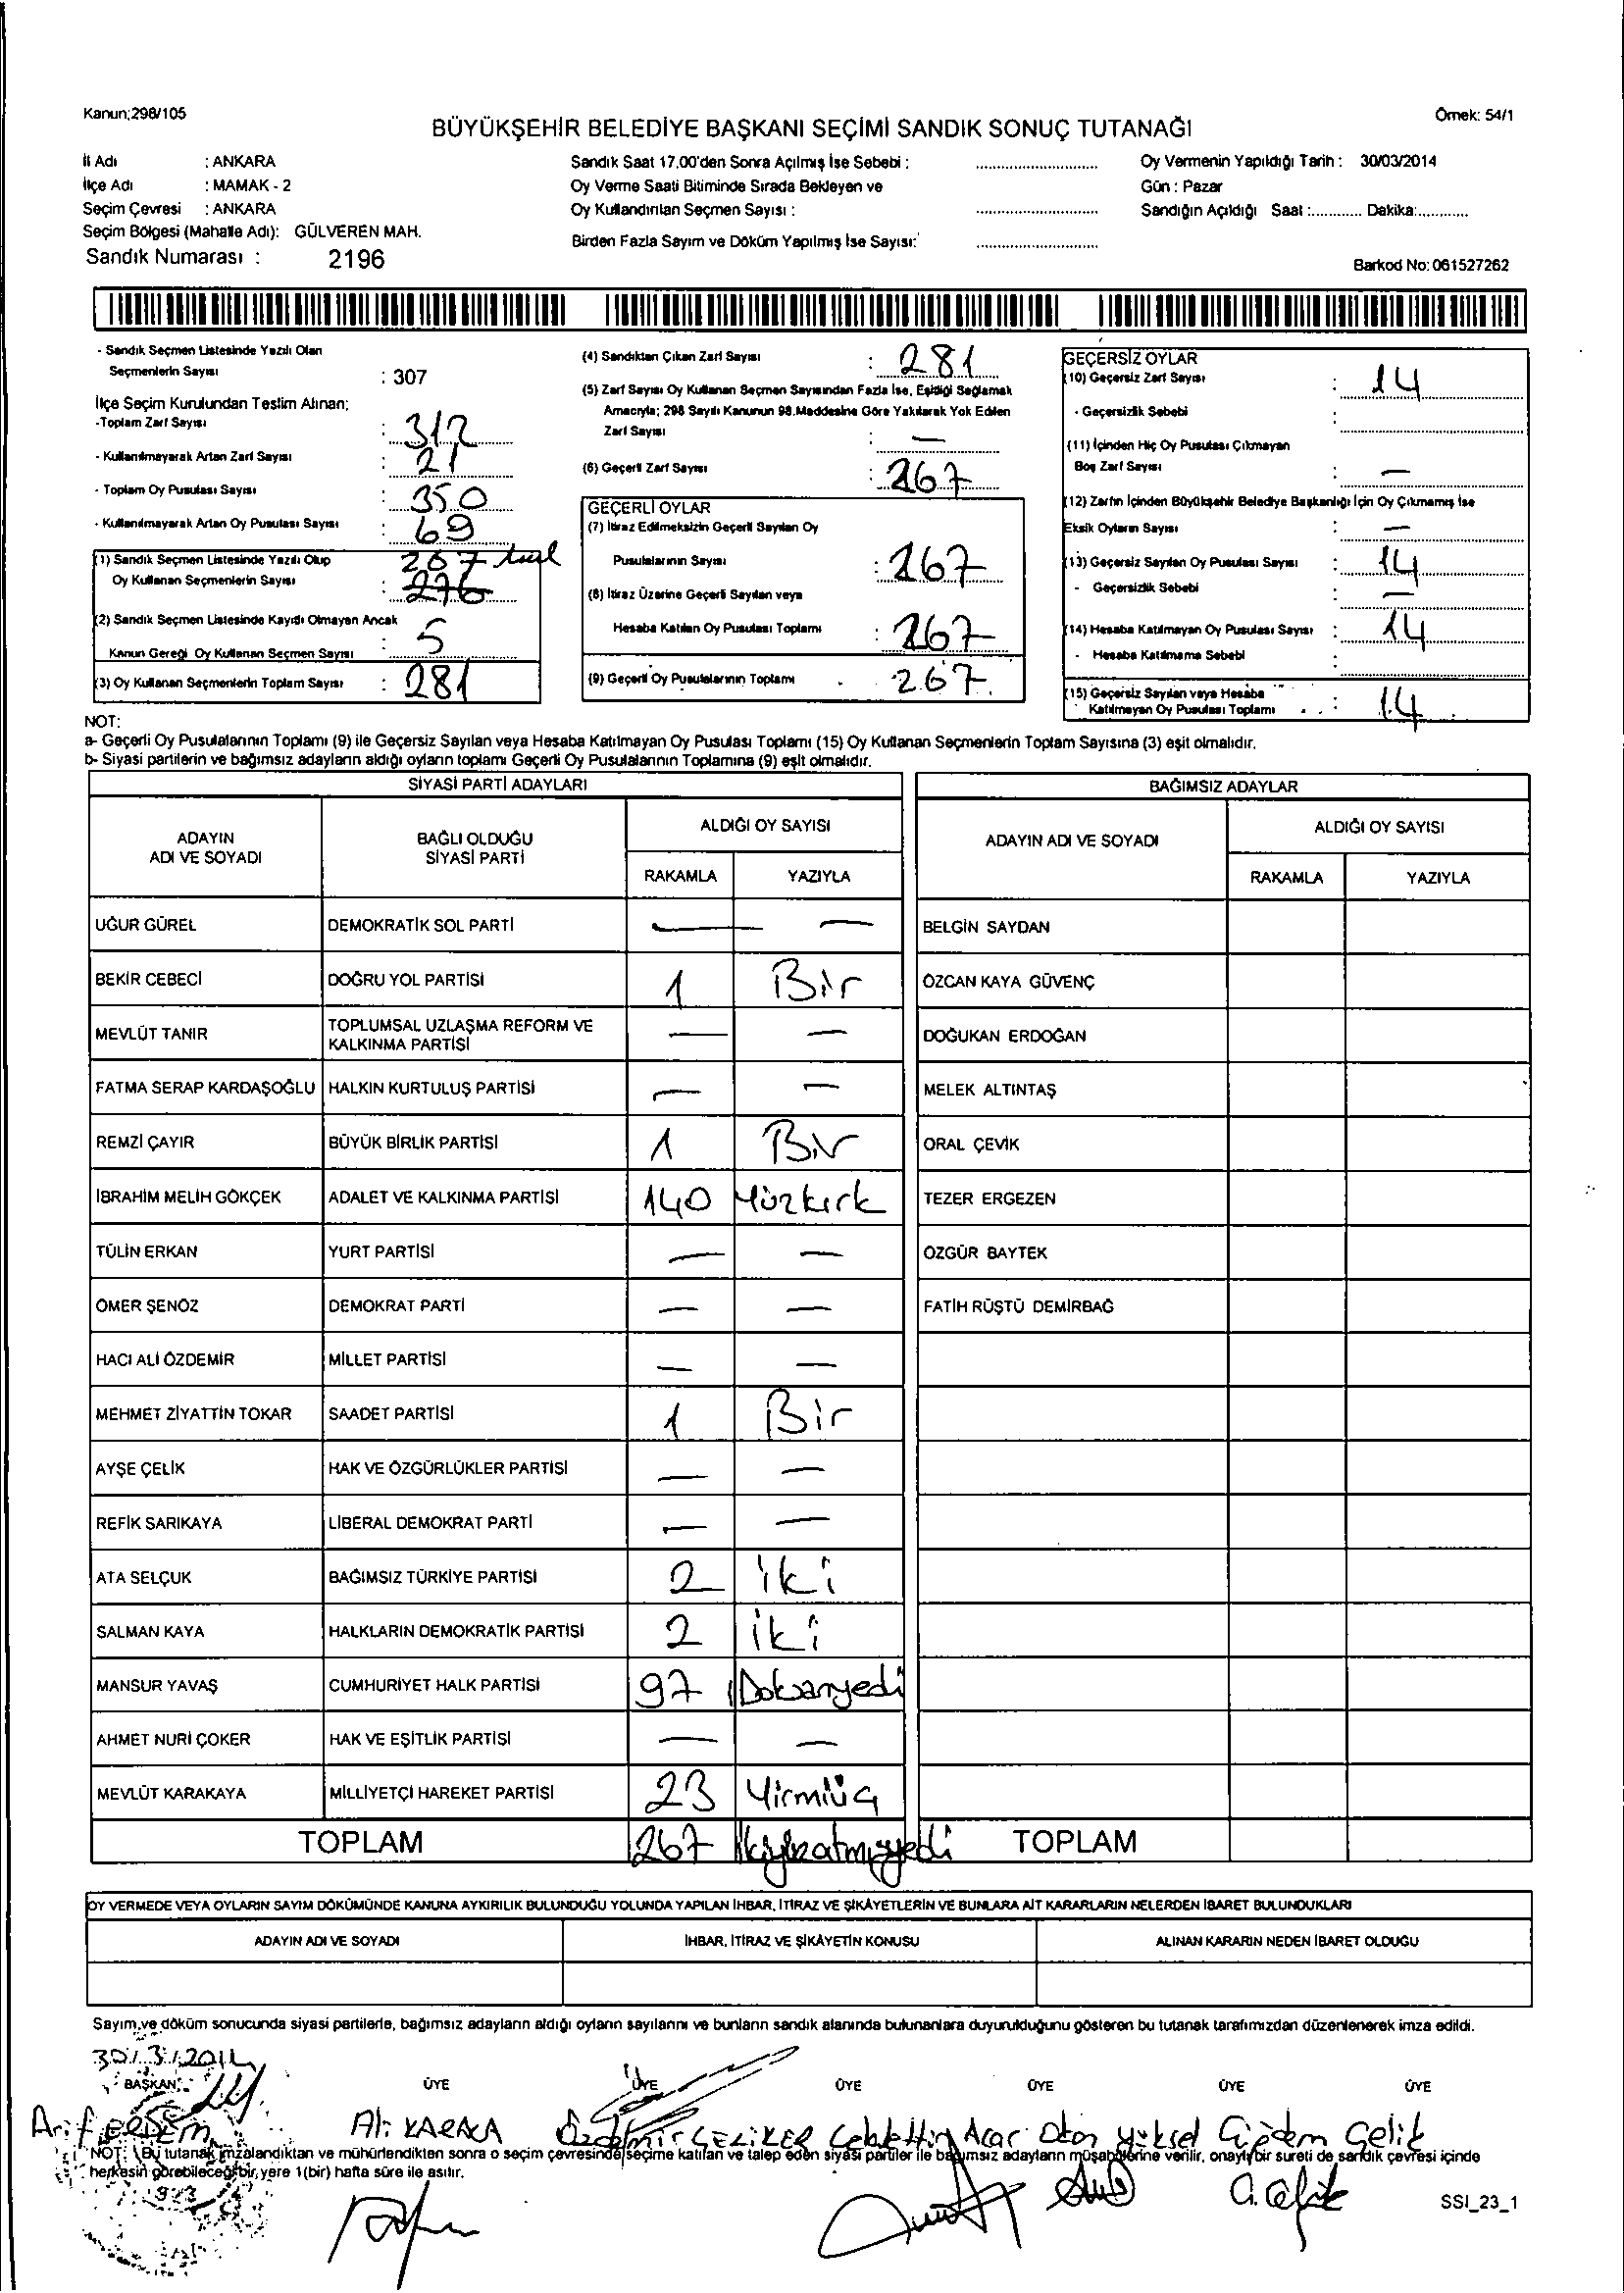 Kanun;298/105
Örnek: 54/1
BÜYÜKŞEHİR BELEDİYE BAŞKANI SEÇİMİ SANDIK SONUÇ TUTANAĞI
İl Adı : ANKARA
İlçe Adı : MAMAK - 2
Seçim Çevresi : ANKARA
Seçim Bölgesi (Mahalle Adı): GÜLVEREN MAH.
Sandık Numarası : 2196
Sandık Saat 17.00'den Sonra Açılmış İse Sebebi :
Oy Verme Saati Bitiminde Sırada Bekleyen ve
Oy Kullandırılan Seçmen Sayısı :
Birden Fazla Sayım ve Döküm Yapılmış İse Sayısı:
Oy Vermenin Yapıldığı Tarih : 30/03/2014
Gün : Pazar
Sandığın Açıldığı Saat :............ Dakika:............
Barkod No: 061527262
- Sandık Seçmen Listesinde Yazılı Olan
Seçmenlerin Sayısı : 307
İlçe Seçim Kurulundan Teslim Alınan;
-Toplam Zarf Sayısı : 312
- Kullanılmayarak Artan Zarf Sayısı : 21
- Toplam Oy Pusulası Sayısı : 350
- Kullanılmayarak Artan Oy Pusulası Sayısı : 69
(1) Sandık Seçmen Listesinde Yazılı Olup 267
Oy Kullanan Seçmenlerin Sayısı : 276
(2) Sandık Seçmen Listesinde Kayıtlı Olmayan Ancak
Kanun Gereği Oy Kullanan Seçmen Sayısı : 5
(3) Oy Kullanan Seçmenlerin Toplam Sayısı : 281
(4) Sandıktan Çıkan Zarf Sayısı : 281
(5) Zarf Sayısı Oy Kullanan Seçmen Sayısından Fazla İse, Eşitliği Sağlamak
Amacıyla; 298 Sayılı Kanunun 98.Maddesine Göre Yakılarak Yok Edilen
Zarf Sayısı : —
(6) Geçerli Zarf Sayısı : 267
GEÇERLİ OYLAR
(7) İtiraz Edilmeksizin Geçerli Sayılan Oy
Pusulalarının Sayısı : 267
(8) İtiraz Üzerine Geçerli Sayılan veya
Hesaba Katılan Oy Pusulası Toplamı : 267
(9) Geçerli Oy Pusulalarının Toplamı 267
GEÇERSİZ OYLAR
(10) Geçersiz Zarf Sayısı : 14
- Geçersizlik Sebebi :
(11) İçinden Hiç Oy Pusulası Çıkmayan
Boş Zarf Sayısı : —
(12) Zarfın İçinden Büyükşehir Belediye Başkanlığı İçin Oy Çıkmamış İse
Eksik Oyların Sayısı : —
(13) Geçersiz Sayılan Oy Pusulası Sayısı : 14
- Geçersizlik Sebebi : —
(14) Hesaba Katılmayan Oy Pusulası Sayısı : 14
- Hesaba Katılmama Sebebi :
(15) Geçersiz Sayılan veya Hesaba
Katılmayan Oy Pusulası Toplamı : 14
NOT:
a- Geçerli Oy Pusulalarının Toplamı (9) ile Geçersiz Sayılan veya Hesaba Katılmayan Oy Pusulası Toplamı (15) Oy Kullanan Seçmenlerin Toplam Sayısına (3) eşit olmalıdır.
b- Siyasi partilerin ve bağımsız adayların aldığı oyların toplamı Geçerli Oy Pusulalarının Toplamına (9) eşit olmalıdır.
SİYASİ PARTİ ADAYLARI
ADAYIN ADI VE SOYADI
BAĞLI OLDUĞU SİYASİ PARTİ
ALDIĞI OY SAYISI
RAKAMLA YAZIYLA
UĞUR GÜREL DEMOKRATİK SOL PARTİ — —
BEKİR CEBECİ DOĞRU YOL PARTİSİ 1 Bir
MEVLÜT TANIR TOPLUMSAL UZLAŞMA REFORM VE KALKINMA PARTİSİ — —
FATMA SERAP KARDAŞOĞLU HALKIN KURTULUŞ PARTİSİ — —
REMZİ ÇAYIR BÜYÜK BİRLİK PARTİSİ 1 Bir
İBRAHİM MELİH GÖKÇEK ADALET VE KALKINMA PARTİSİ 140 Yüzkırk
TÜLİN ERKAN YURT PARTİSİ — —
ÖMER ŞENÖZ DEMOKRAT PARTİ — —
HACI ALİ ÖZDEMİR MİLLET PARTİSİ — —
MEHMET ZİYATTİN TOKAR SAADET PARTİSİ 1 Bir
AYŞE ÇELİK HAK VE ÖZGÜRLÜKLER PARTİSİ — —
REFİK SARIKAYA LİBERAL DEMOKRAT PARTİ — —
ATA SELÇUK BAĞIMSIZ TÜRKİYE PARTİSİ 2 iki
SALMAN KAYA HALKLARIN DEMOKRATİK PARTİSİ 2 iki
MANSUR YAVAŞ CUMHURİYET HALK PARTİSİ 97 Doksanyedi
AHMET NURİ ÇOKER HAK VE EŞİTLİK PARTİSİ — —
MEVLÜT KARAKAYA MİLLİYETÇİ HAREKET PARTİSİ 23 Yirmiüç
TOPLAM 267 ikiyüzatmışyedi
BAĞIMSIZ ADAYLAR
ADAYIN ADI VE SOYADI
ALDIĞI OY SAYISI
RAKAMLA YAZIYLA
BELGİN SAYDAN
ÖZCAN KAYA GÜVENÇ
DOĞUKAN ERDOĞAN
MELEK ALTINTAŞ
ORAL ÇEVİK
TEZER ERGEZEN
ÖZGÜR BAYTEK
FATİH RÜŞTÜ DEMİRBAĞ
TOPLAM
OY VERMEDE VEYA OYLARIN SAYIM DÖKÜMÜNDE KANUNA AYKIRILIK BULUNDUĞU YOLUNDA YAPILAN İHBAR, İTİRAZ VE ŞİKÂYETLERİN VE BUNLARA AİT KARARLARIN NELERDEN İBARET BULUNDUKLARI
ADAYIN ADI VE SOYADI İHBAR, İTİRAZ VE ŞİKÂYETİN KONUSU ALINAN KARARIN NEDEN İBARET OLDUĞU
Sayım ve döküm sonucunda siyasi partilerle, bağımsız adayların aldığı oyların sayılarını ve bunların sandık alanında bulunanlara duyurulduğunu gösteren bu tutanak tarafımızdan düzenlenerek imza edildi.
30/3/2014
BAŞKAN ÜYE ÜYE ÜYE ÜYE ÜYE ÜYE
Arif ERDEM Ali KARACA Özdemir ÇELİKER Celalettin Acar Ozan Yüksel Çiğdem Çelik
NOT: Bu tutanak imzalandıktan ve mühürlendikten sonra o seçim çevresinde seçime katılan ve talep eden siyasi partiler ile bağımsız adayların müşahitlerine verilir, onaylı bir sureti de sandık çevresi içinde
herkesin görebileceği bir yere 1(bir) hafta süre ile asılır.
SSI_23_1